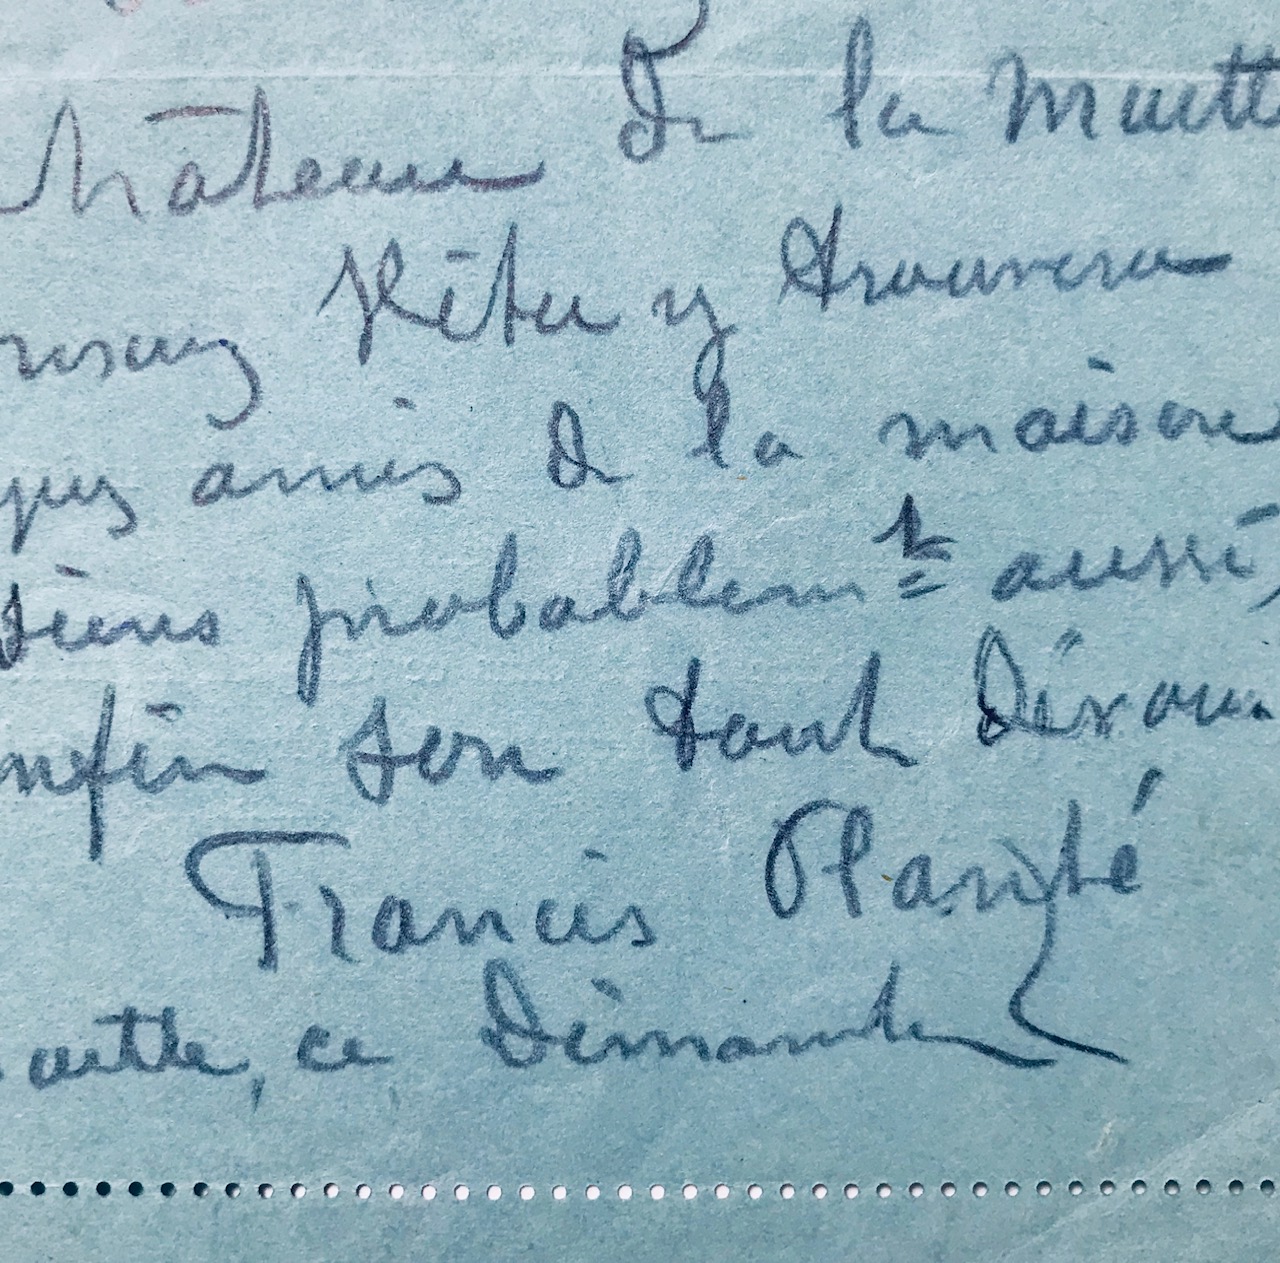 hâteau De la Muett
Vêtu y trouvera
ques amis De la maison
siens probablemt aussi,
nfin son tout Dévou
Francis Planté
uette, ce Dimanche